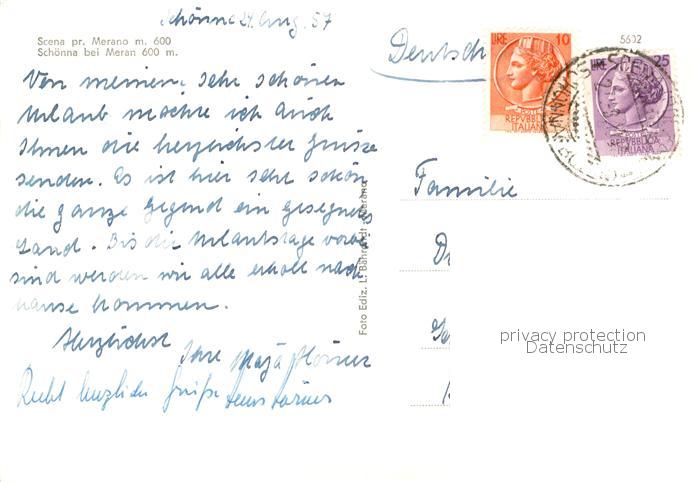 Schönna 24. Aug. 57
Scena pr. Merano m. 600
Schönna bei Meran 600 m.
Von meinem sehr schönen
Urlaub möchte ich auch
Ihnen die herzlichster Grüsse
senden. Es ist hier sehr schön
die ganze Gegend ein gesegnetes
Land. Bis die Urlaubstage vorbei
sind werden wir alle erholt nach
hause kommen.
Herzlichst
Ihre Maja
Recht herzliche Grüße
Foto Ediz. L. Bährendt - Merano
Deutsch
LIRE 10
POSTE
REPVBBLICA
ITALIANA
5602
LIRE 25
POSTE
REPVBBLICA
ITALIANA
Familie
privacy protection
Datenschutz